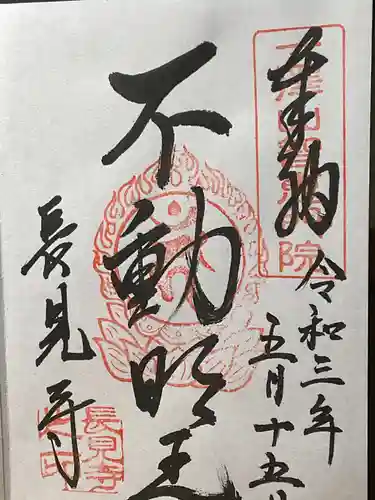 奉納
令和三年
五月十五
不動明王
長見寺
長見寺